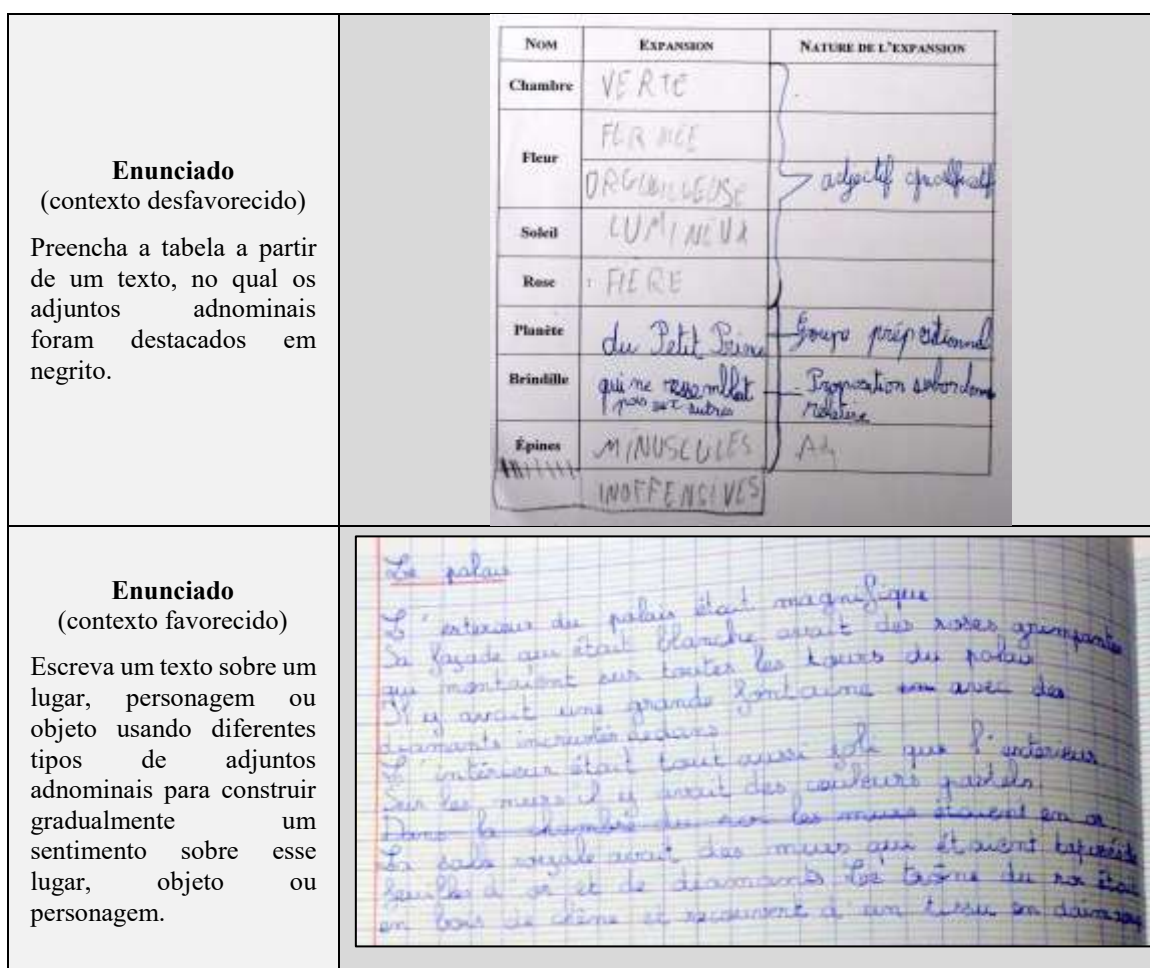 Enunciado
(contexto desfavorecido)
Preencha a tabela a partir
de um texto, no qual os
adjuntos adnominais
foram destacados em
negrito.
NOM EXPANSION NATURE DE L'EXPANSION
Chambre VERTE
Fleur FERMÉE
ORGUEILLEUSE adjectif qualificatif
Soleil LUMINEUX
Rose FIERE
Planète du Petit Prince Groupe prépositionnel
Brindille qui ne ressemblait Proposition subordonnée
pas aux autres relative
Épines MINUSCULES Adj
INOFFENSIVES
Enunciado
(contexto favorecido)
Escreva um texto sobre um
lugar, personagem ou
objeto usando diferentes
tipos de adjuntos
adnominais para construir
gradualmente um
sentimento sobre esse
lugar, objeto ou
personagem.
Le palais
L'exterieur du palais était magnifique
Sa façade qui était blanche avait des roses grimpantes
qui montaient sur toutes les tours du palais
Il y avait une grande fontaine avec des
diamants incrustés dedans
L'intérieur était tout aussi joli que l'exterieur
Sur les murs il y avait des couleurs pastels.
Dans la chambre du roi les murs étaient en or.
La salle royale avait des murs qui étaient
feuilles d'or et de diamants Le trône du roi était
en bois de chêne et recouvert d'un tissu en daim